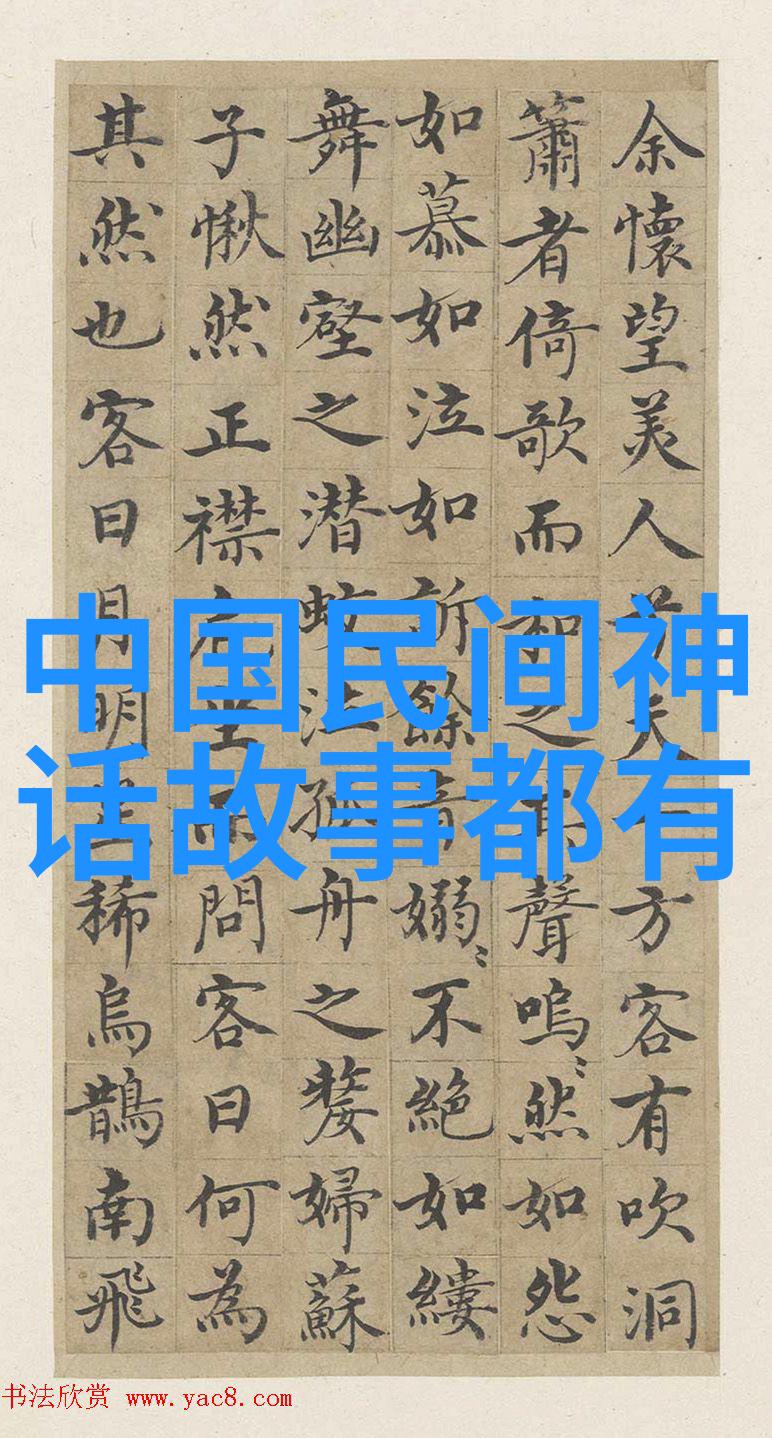 余懷望美人兮天方客有吹洞
簫者倚歌而和之其聲嗚〻然如怨
如慕如泣如訴餘音嫋〻不絕如縷
舞幽壑之潛蛟泣孤舟之嫠婦蘇
子愀然正襟危坐而問客曰何為
其然也客曰月明星稀烏鵲南飛
中国民间神
话故事都有
书法欣赏 www.yac8.com